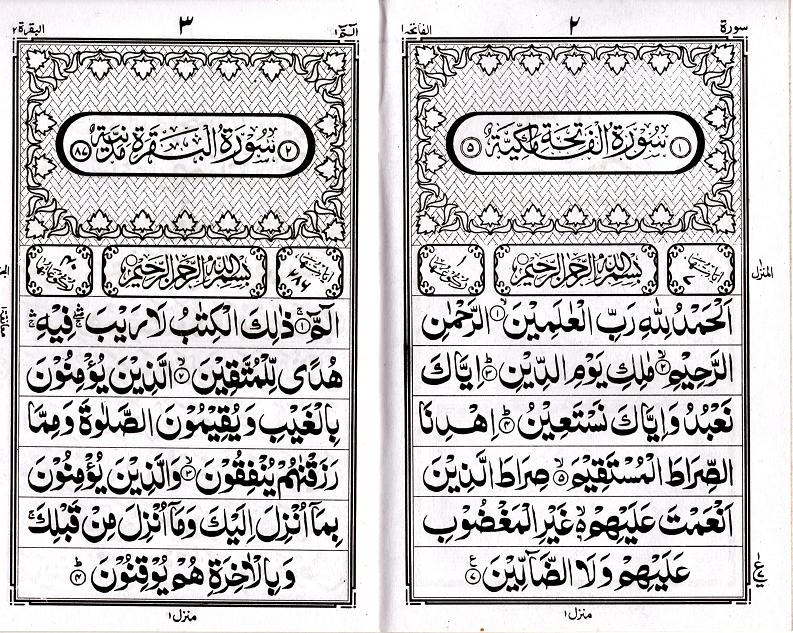 سورة
٢
الفاتحة ١
١ سُوْرَةُ الْفَاتِحَةِ مَكِّيَّةٌ ٥
اٰيَاتُهَا ٧
بِسْمِ اللّٰهِ الرَّحْمٰنِ الرَّحِيْمِ
رُكُوْعُهَا ١
اَلْحَمْدُ لِلّٰهِ رَبِّ الْعٰلَمِيْنَ ۙ﴿١﴾ الرَّحْمٰنِ
الرَّحِيْمِ ۙ﴿٢﴾ مٰلِكِ يَوْمِ الدِّيْنِ ؕ﴿٣﴾ اِيَّاكَ
نَعْبُدُ وَاِيَّاكَ نَسْتَعِيْنُ ؕ﴿٤﴾ اِهْدِنَا
الصِّرَاطَ الْمُسْتَقِيْمَ ۙ﴿٥﴾ صِرَاطَ الَّذِيْنَ
اَنْعَمْتَ عَلَيْهِمْ ۙ۬ غَيْرِ الْمَغْضُوْبِ
عَلَيْهِمْ وَلَا الضَّآلِّيْنَ ﴿٧﴾
المنزل
منزل ١
الٓمّٓ ١
٣
البقرة ٢
٢ سُوْرَةُ الْبَقَرَةِ مَدَنِيَّةٌ ٨٧
اٰيَاتُهَا ٢٨٦
بِسْمِ اللّٰهِ الرَّحْمٰنِ الرَّحِيْمِ
رُكُوْعَاتُهَا ٤٠
الٓمّٓ ۚ﴿١﴾ ذٰلِكَ الْكِتٰبُ لَا رَيْبَ ۛۚ فِيْهِ ۛۚ
هُدًى لِّلْمُتَّقِيْنَ ۙ﴿٢﴾ الَّذِيْنَ يُؤْمِنُوْنَ
بِالْغَيْبِ وَيُقِيْمُوْنَ الصَّلٰوةَ وَمِمَّا
رَزَقْنٰهُمْ يُنْفِقُوْنَ ۙ﴿٣﴾ وَالَّذِيْنَ يُؤْمِنُوْنَ
بِمَآ اُنْزِلَ اِلَيْكَ وَمَآ اُنْزِلَ مِنْ قَبْلِكَ ۚ
وَبِالْاٰخِرَةِ هُمْ يُوْقِنُوْنَ ؕ﴿٤﴾
منزل ١